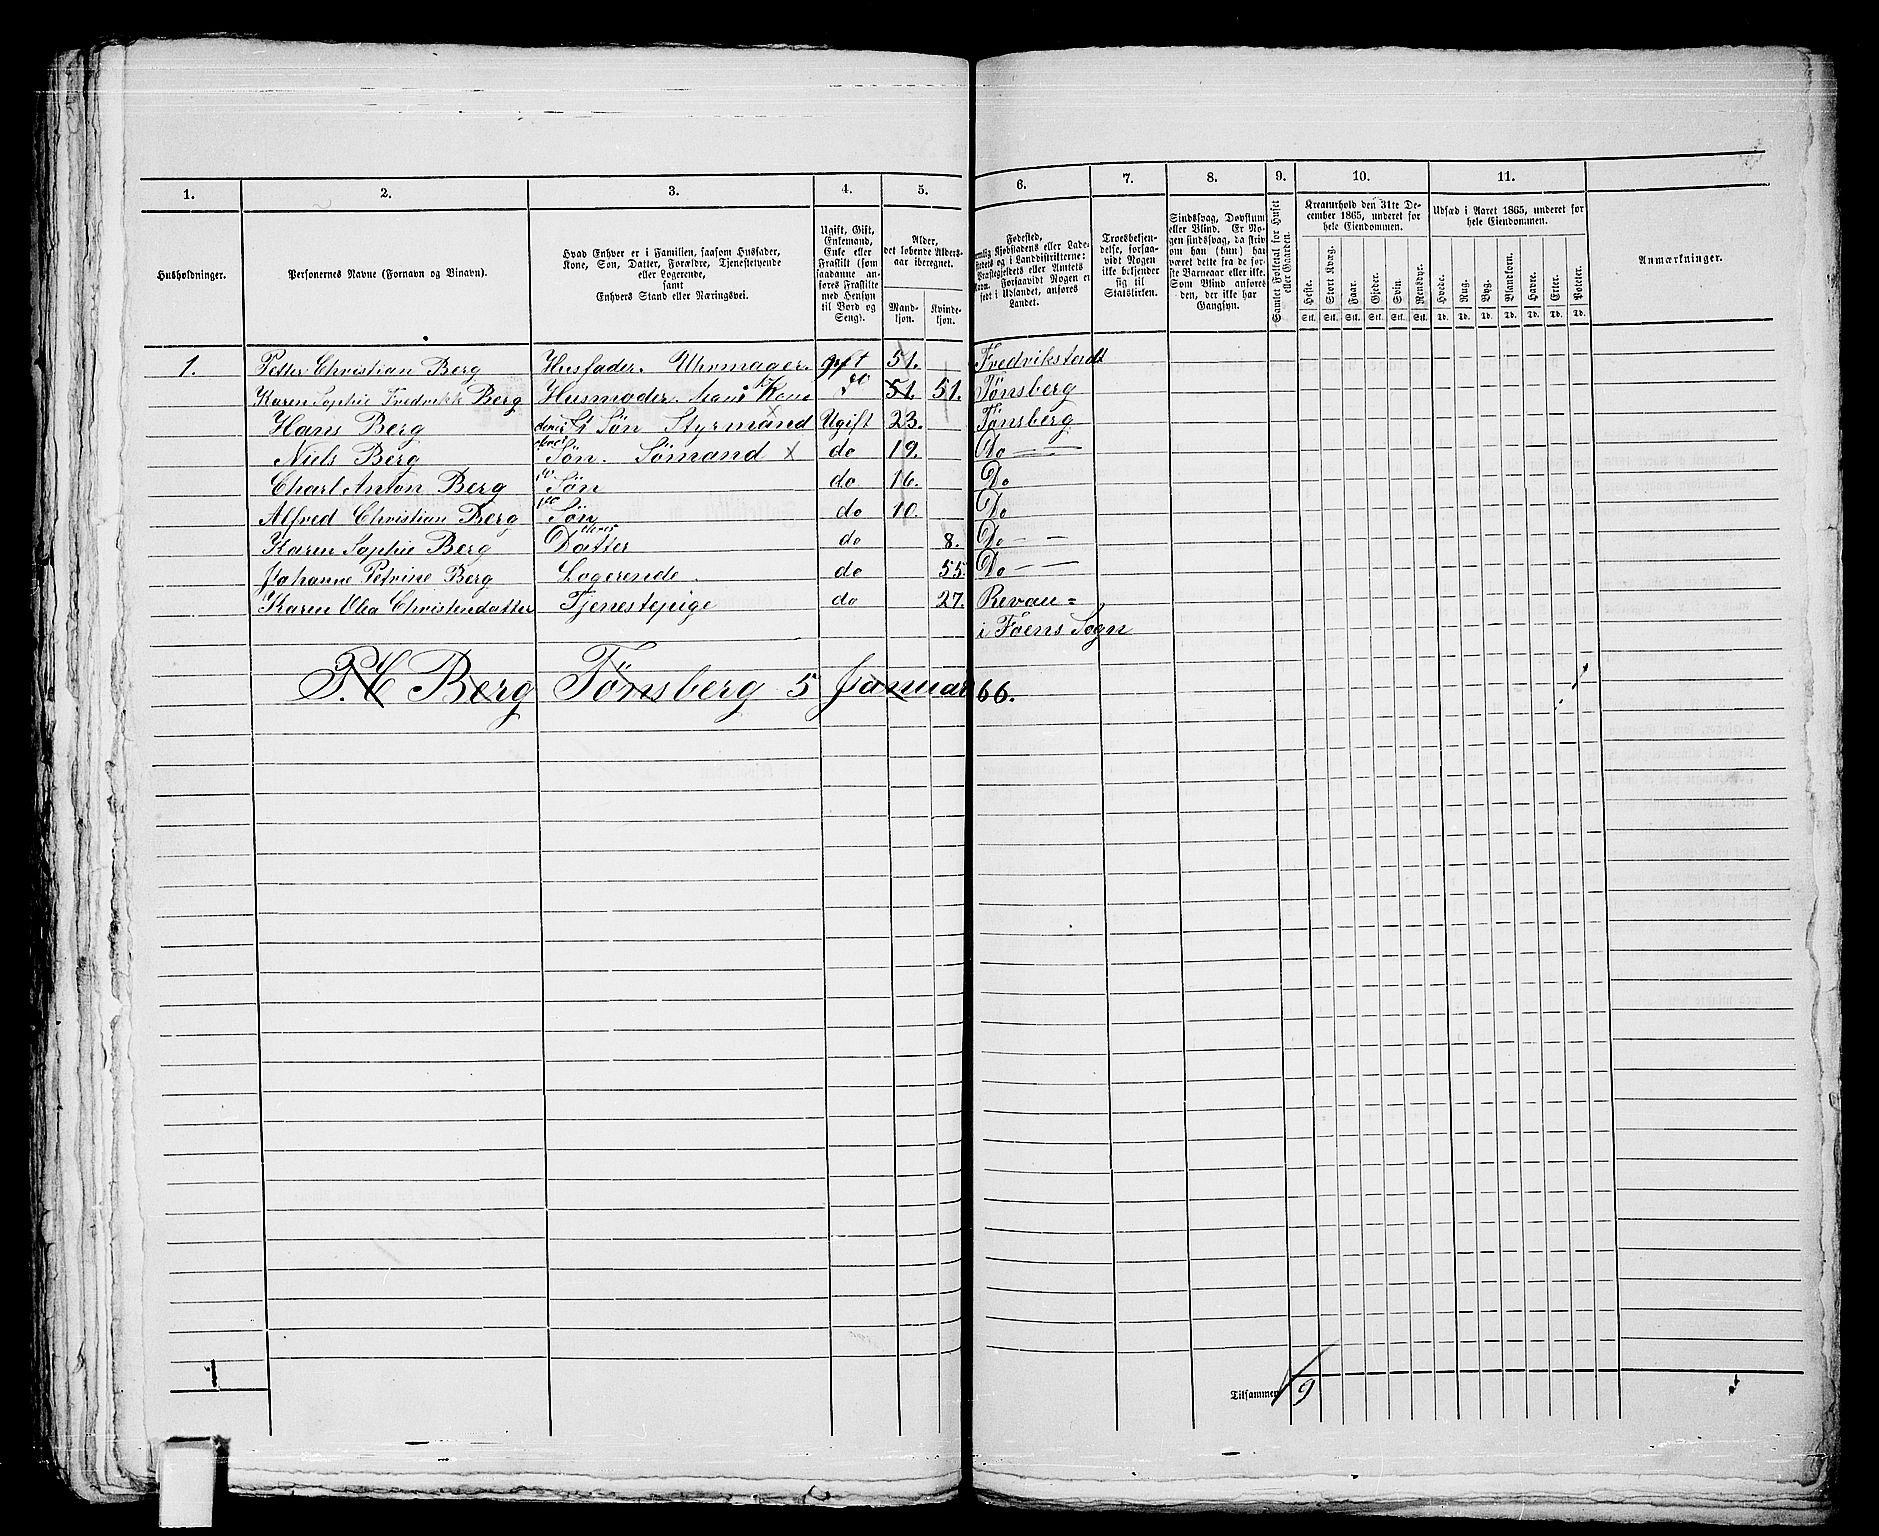 1. 2. 3. 4. 5. 6. 7. 8. 9. 10. 11.
Husholdninger. Personernes Navne (Fornavn og Binavn). Hvad Enhver er i Familien, saasom Husfader, Kone, Søn, Datter, Forældre, Tjenestetyende eller Logerende, samt Enhvers Stand eller Næringsvei. Ugift, Gift, Enkemand, Enke eller Fraskilt (som saadanne anføres Fraskilte med Hensyn til Bord og Seng). Alder, det løbende Alders-aar iberegnet. Mandkjøn. Kvindekjøn.
Fødested, nemlig Kjøbstadens eller Ladestedets og i Landdistrikterne: Præstegjeldets eller Amtets Navn. Forsaavidt Nogen er født i Udlandet, anføres Landet. Troesbekjendelse, forsaavidt Nogen ikke bekjender sig til Statskirken. Sindssvag, Døvstum eller Blind. Er Nogen sindssvag, da skrives om han (hun) har været dette fra de første Barneaar eller ikke. Som Blind anføres den, der ikke har Gangsyn. Samlet Folketal for Huset eller Gaarden.
Kreaturhold den 31te December 1865, underet for hele Eiendommen. Heste. Stort Kvæg. Faar. Gjeder. Svin. Rensdyr. Stk. Stk. Stk. Stk. Stk. Stk.
Udsæd i Aaret 1865, underet for hele Eiendommen. Hvede. Rug. Byg. Blandkorn. Havre. Erter. Poteter. Td. Td. Td. Td. Td. Td. Td.
Anmærkninger.
1. Petter Christian Berg Husfader. Uhrmager. gift 51. Fredrikstadt
Karen Sophie Fredrikke Berg Husmoder. Hans Kone do 51. 51. Tönsberg
Hans Berg deres Søn Styrmand Ugift 23. Tönsberg
Niels Berg deres Søn. Sømand x do 19. Do — —
Charl Anton Berg do Søn do 16. Do
Alfred Christian Berg do Søn do 10. Do
Karen Sophie Berg deres Datter do 8. Do — —
Johanne Petrine Berg Logerende. do 55 Do — —
Karen Olea Christendatter Tjenestepige do 27. Revau=
i Föens Sogn
P. C Berg Tønsberg 5 Januar 66.
1
Tilsammen 9